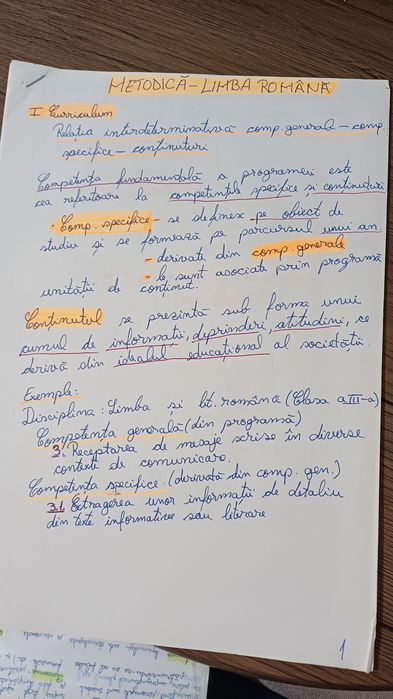 METODICĂ - LIMBA ROMÂNĂ
I Curriculum
Relația interdeterminativă comp. generale - comp.
specifice - conținuturi
Competența fundamentală a programei este
cea referitoare la competențele specifice și conținuturi
• Comp. specifice - se definesc pe obiect de
studiu și se formează pe parcursul unui an.
- derivate din comp. generale
- le sunt asociate prin programă
unității de conținut.
Conținutul se prezintă sub forma unui
cumul de informații, deprinderi, atitudini, ce
derivă din idealul educațional al societății.
Exemple:
Disciplina: Limba și lit. română (Clasa a III-a)
Competența generală (din programă)
3. Receptarea de mesaje scrise în diverse
contexte de comunicare.
Competența specifică (derivată din comp. gen.)
3.1. Extragerea unor informații de detaliu
din texte informative sau literare
1